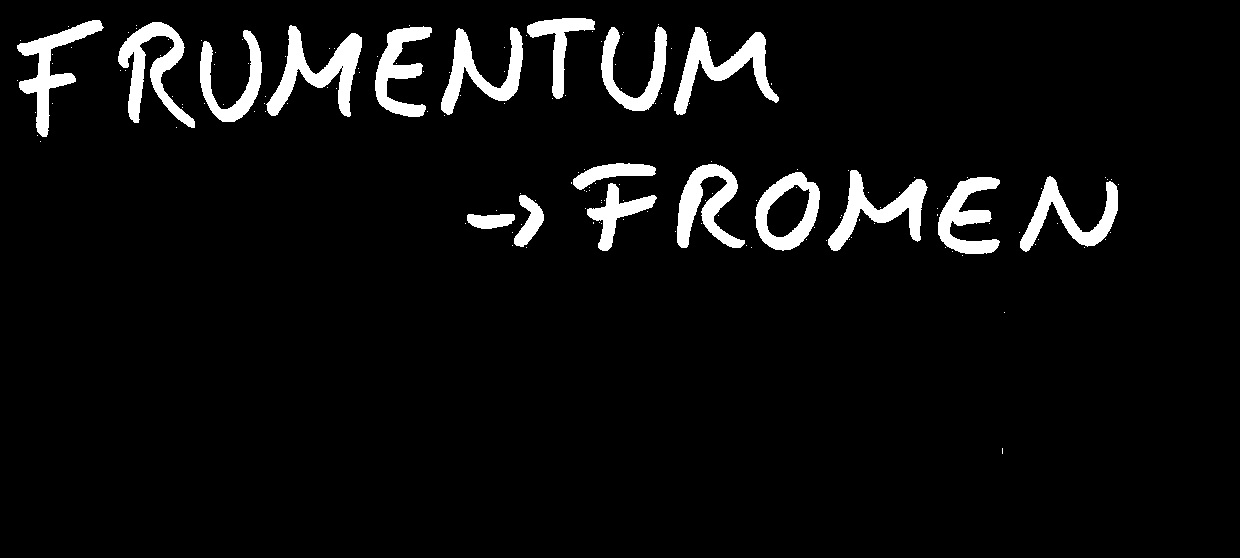 FRUMENTUM
→ FROMEN